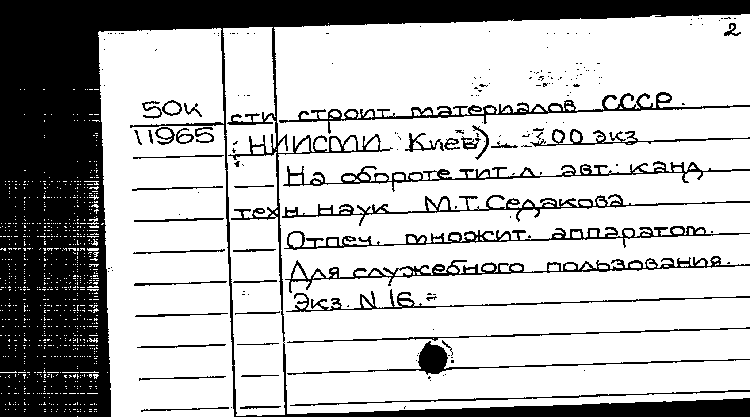 2
50К сти строит. материалов СССР.
11965 НИИСМИ Киев). 300 экз.
На обороте тит. л. авт.: канд.
техн. наук М.Т. Седакова.
Отпеч. множит. аппаратом.
Для служебного пользования.
Экз. N 16. =